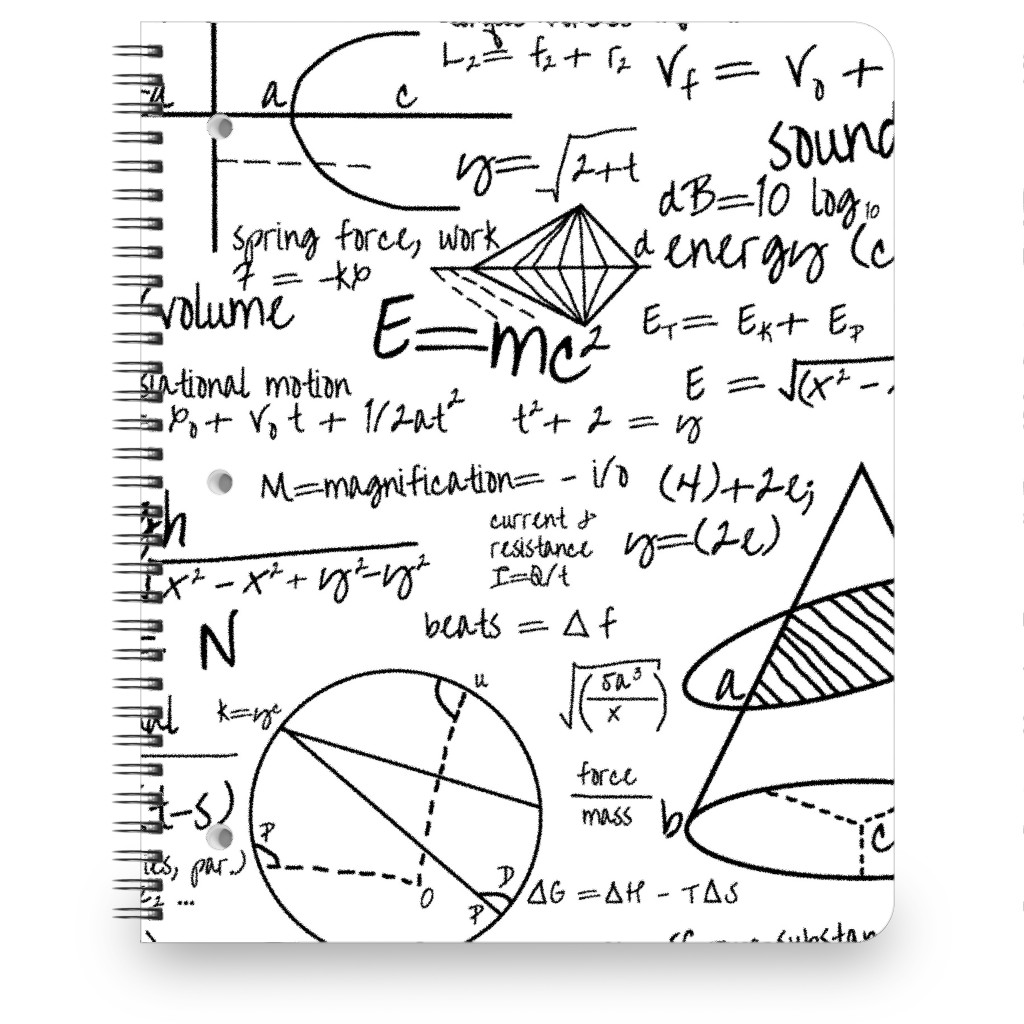 L₂= f₂ + r₂
V_f = V₀ +
a c
sound
y=√2+t
dB=10 log₁₀
spring force, work
d
energy (c
F = -kp
volume
E=mc²
E_T= E_K+ E_P
E = √(x² -
motion
p₀+ V₀t + 1/2at²
t²+ 2 = y
M=magnification= - i/o
(4)+2e;
current &
resistance
I=Q/t
y=(2e)
x² - x² + y²-y²
N
beats = Δ f
u
√(5a³/x)
a
k=yc
force
mass
b
t-s)
P
c
par.)
O
D
P
ΔG =ΔH - TΔS